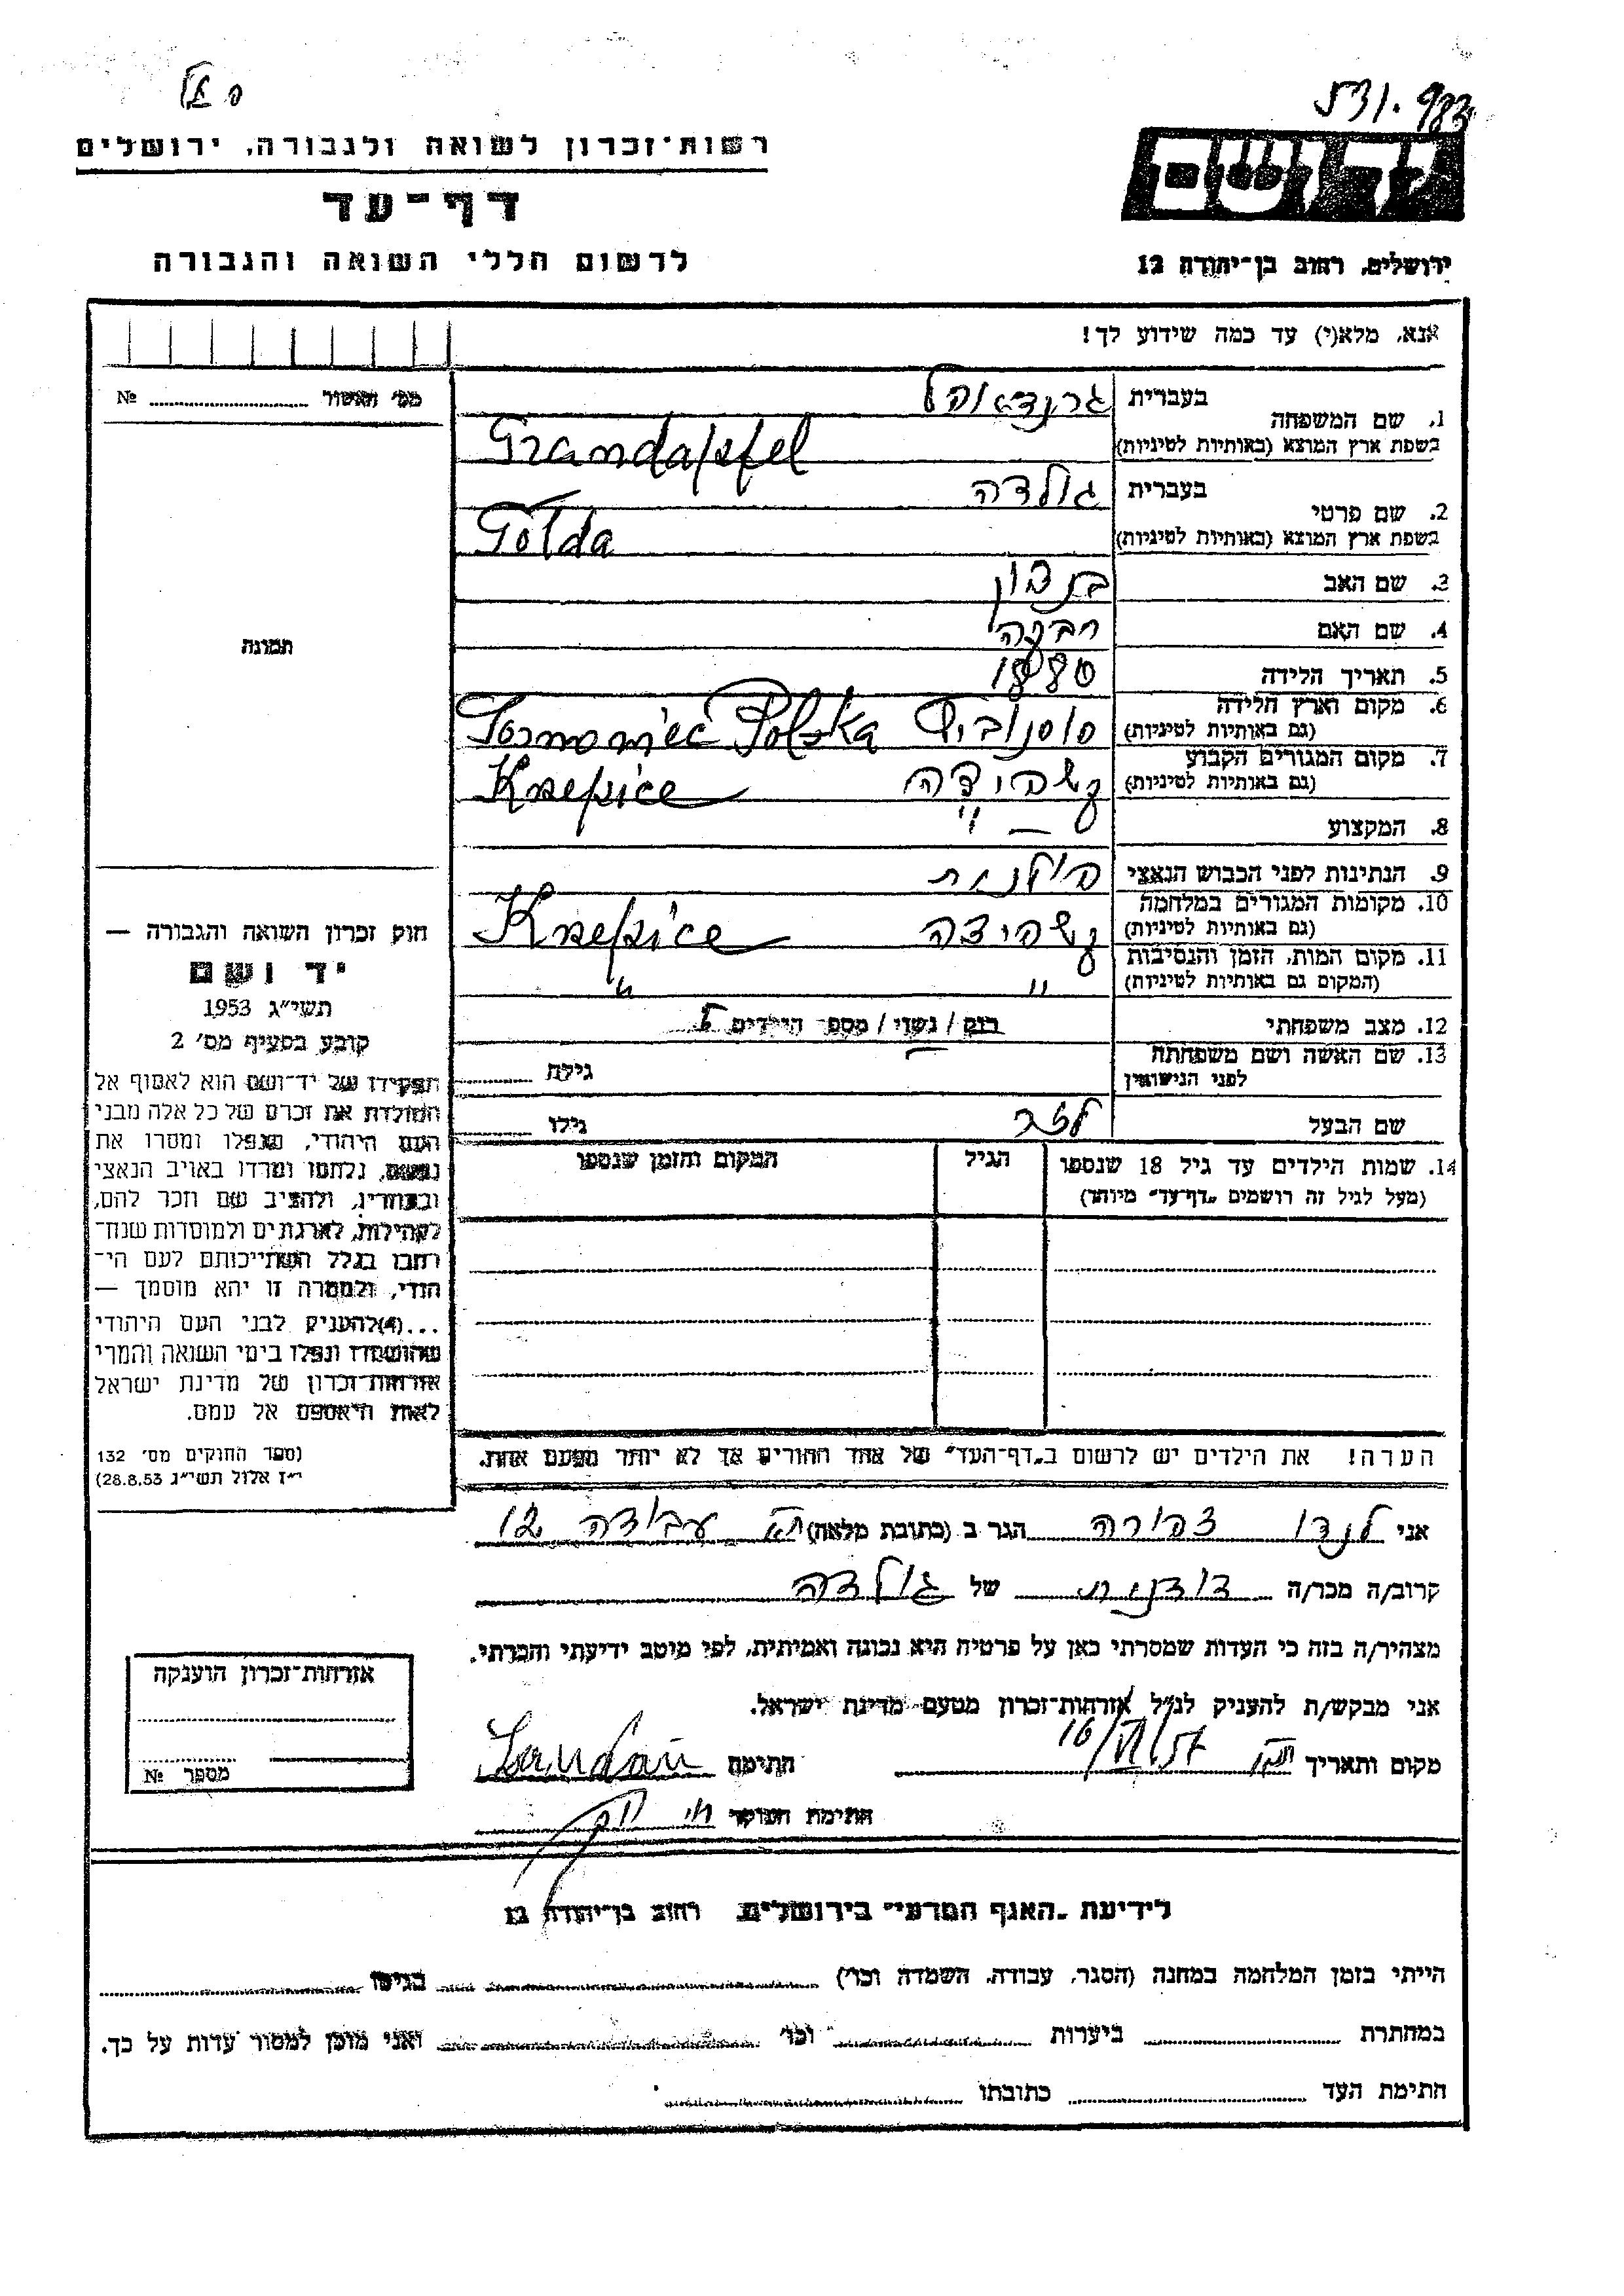 רשות־זכרון לשואה ולגבורה, ירושלים
דף־עד
לרשום חללי השואה והגבורה
יד ושם
ירושלים, רחוב בן־יהודה 12
אנא, מלא(י) עד כמה שידוע לך!
מס' האשור № 
1. שם המשפחה
בעברית
בשפת ארץ המוצא (באותיות לטיניות)
Grandapfel
2. שם פרטי
בעברית גולדה
בשפת ארץ המוצא (באותיות לטיניות)
Golda
3. שם האב
4. שם האם
5. תאריך הלידה 1880
6. מקום וארץ הלידה
(גם באותיות לטיניות) Polska
7. מקום המגורים הקבוע
(גם באותיות לטיניות) Knepice
8. המקצוע
9. הנתינות לפני הכבוש הנאצי
10. מקומות המגורים במלחמה
(גם באותיות לטיניות) Knepice
11. מקום המות, הזמן והנסיבות
(המקום גם באותיות לטיניות) " "
12. מצב משפחתי רווק / נשוי / מספר הילדים
13. שם האשה ושם משפחתה
לפני הנישואין
גילה
שם הבעל
גילו
14. שמות הילדים עד גיל 18 שנספו
(מעל לגיל זה רושמים "דף־עד" מיוחד)
הגיל
המקום והזמן שנספו
הערה! את הילדים יש לרשום ב"דף־העד" של אחד ההורים אך לא יותר מפעם אחת.
תמונה
חוק זכרון השואה והגבורה —
יד ושם
תשי"ג 1953
קובע בסעיף מס' 2
תפקידו של יד־ושם הוא לאסוף אל
המולדת את זכרם של כל אלה מבני
העם היהודי, שנפלו ומסרו את
נפשם, נלחמו ומרדו באויב הנאצי
ובעוזריו, ולהציב שם וזכר להם,
לקהילות, לארגונים ולמוסדות שנח־
רבו בגלל השתייכותם לעם הי־
הודי, ולמטרה זו יהא מוסמך —
...(4) להעניק לבני העם היהודי
שהושמדו ונפלו בימי השואה והמרי
אזרחות־זכרון של מדינת ישראל
לאות היאספם אל עמם.
(ספר החוקים מס' 132
י"ז אלול תשי"ג 28.8.53)
אני לנדו צפורה הגר ב (כתובת מלאה) ת"א עבודה 12
קרוב/ה מכר/ה דודנית של גולדה
מצהיר/ה בזה כי העדות שמסרתי כאן על פרטיה היא נכונה ואמיתית, לפי מיטב ידיעתי והכרתי.
אני מבקש/ת להעניק לנ"ל אזרחות־זכרון מטעם מדינת ישראל.
מקום ותאריך חתימה Landau
חתימת הפוקד
אזרחות־זכרון הוענקה
מספר №
לידיעת "האגף המדעי" בירושלים, רחוב בן־יהודה 12
הייתי בזמן המלחמה במחנה (הסגר, עבודה, השמדה וכו') בגיטו
במחתרת ביערות וכו' ואני מוכן למסור עדות על כך.
חתימת העד כתובתו